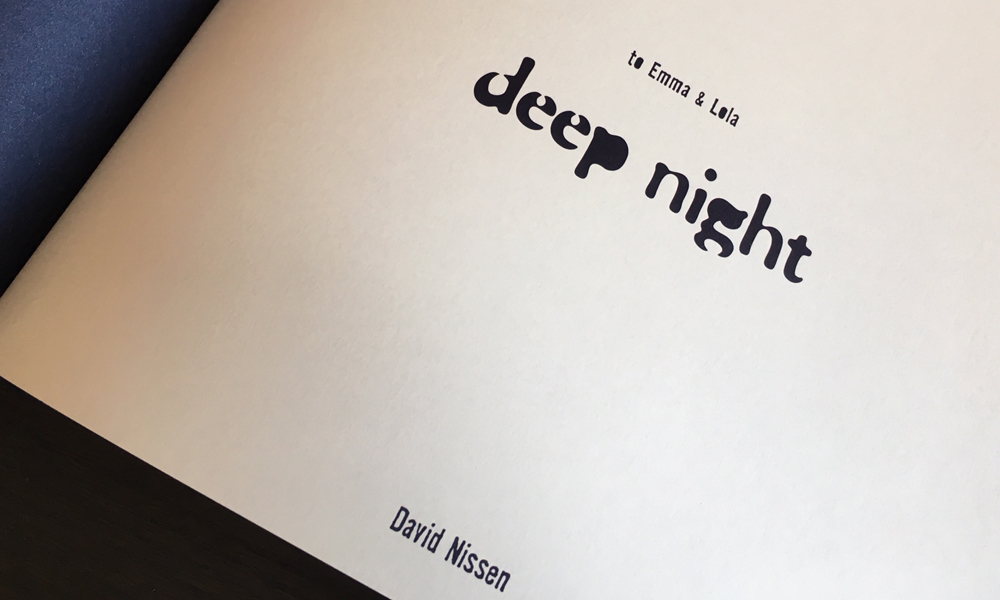 to Emma & Lola
deep night
David Nissen